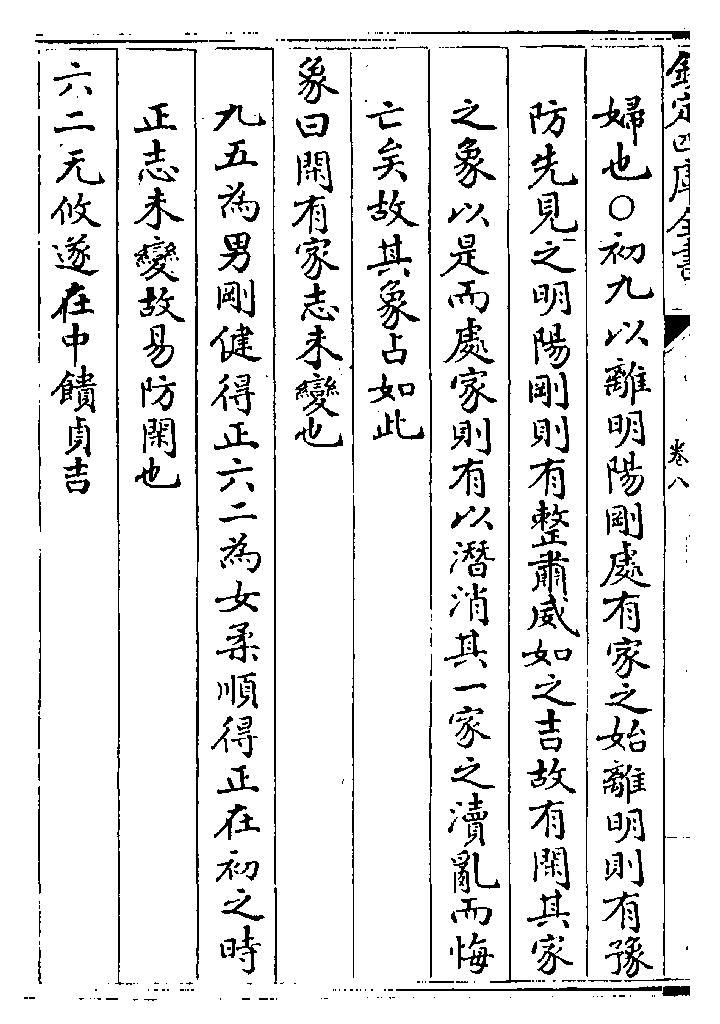 欽定四庫全書
卷八
婦也○初九以離明陽剛處有家之始離明則有豫
防先見之明陽剛則有整肅威如之吉故有閑其家
之象以是而處家則有以潛消其一家之瀆亂而悔
亡矣故其象占如此
象曰閑有家志未變也
九五為男剛健得正六二為女柔順得正在初之時
正志未變故易防閑也
六二无攸遂在中饋貞吉